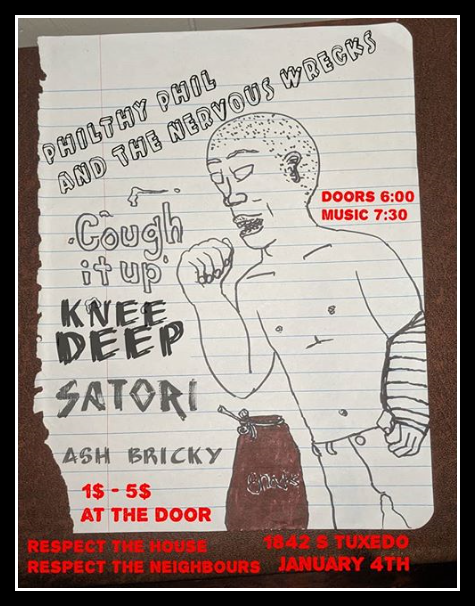 PHILTHY PHIL
AND THE NERVOUS WRECKS
DOORS 6:00
MUSIC 7:30
Cough
it up
KNEE
DEEP
SATORI
ASH BRICKY
1$ - 5$
AT THE DOOR
RESPECT THE HOUSE
RESPECT THE NEIGHBOURS
1842 S TUXEDO
JANUARY 4TH